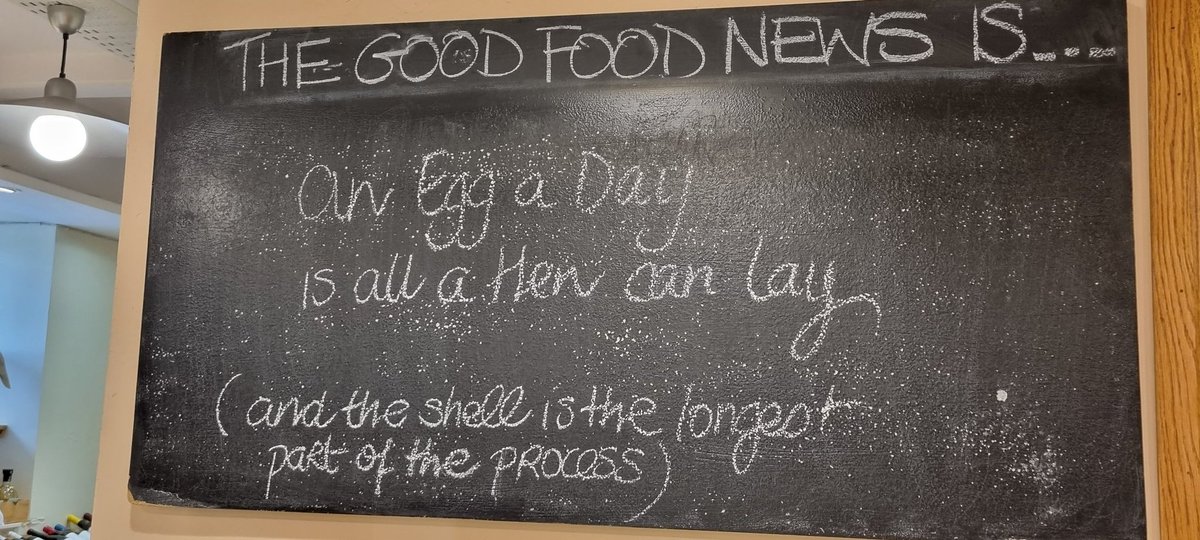 THE GOOD FOOD NEWS IS.....
an Egg a Day
is all a Hen can lay
(and the shell is the longest
part of the process)